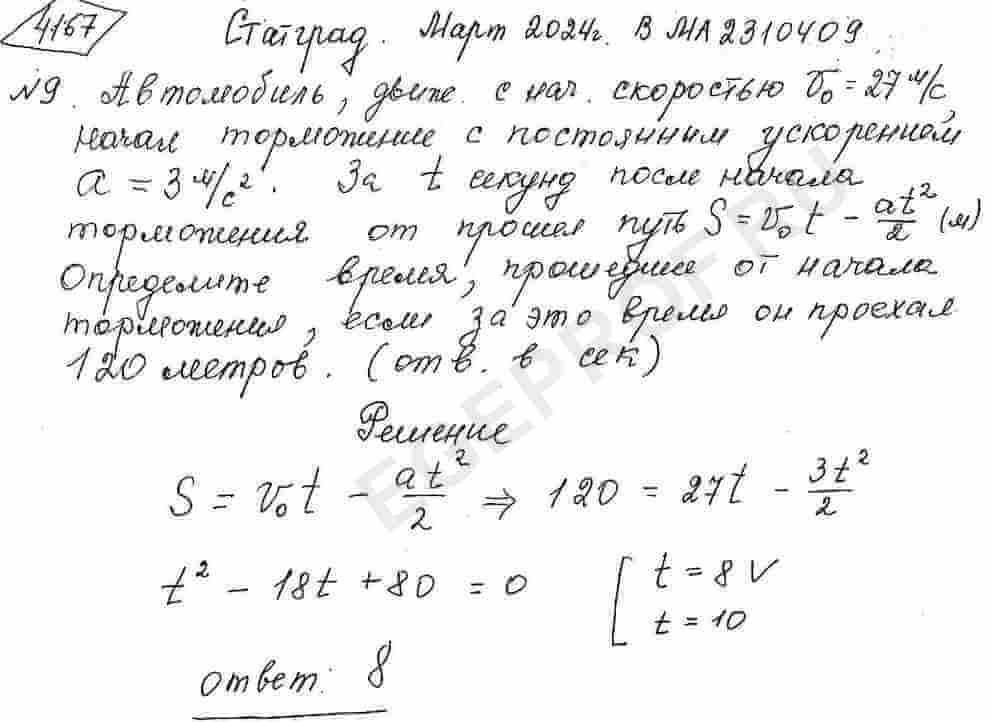 4167 Статград. Март 2024г. В МА2310409
№9. Автомобиль, движ. с нач. скоростью V₀ = 27 м/с,
начал торможение с постоянным ускорением
a = 3 м/с². За t секунд после начала
торможения он прошел путь S = V₀t - at²/2 (м)
Определите время, прошедшее от начала
торможения, если за это время он проехал
120 метров. (отв. в сек)
Решение
S = V₀t - at²/2 ⇒ 120 = 27t - 3t²/2
t² - 18t + 80 = 0 [ t = 8 ✓
t = 10
ответ: 8
EGEPROF.RU